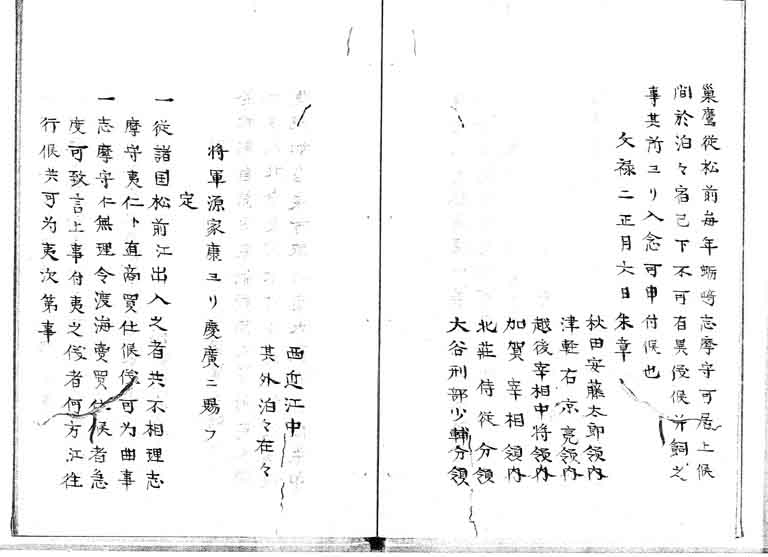 巣鷹従松前毎年蛎崎志摩守可居上候
間於泊々宿已下不可有異儀候并飼之
事其所ヨリ入念可申付候也
文禄二正月六日朱章
秋田安藤太郎領内
津軽右京亮領内
越後宰相中将領内
加賀宰相領内
北荘侍従分領
大谷刑部少輔分領
西近江中
其外泊々在々
将軍源家康ヨリ慶廣ニ賜フ
定
一従諸国松前江出入之者共不相理志
摩守夷仁ト直商買仕候儀可为曲事
一志摩守仁無理令渡海賣買仕候者急
度可致言上事付夷之儀者何方江往
行候共可为夷次第事